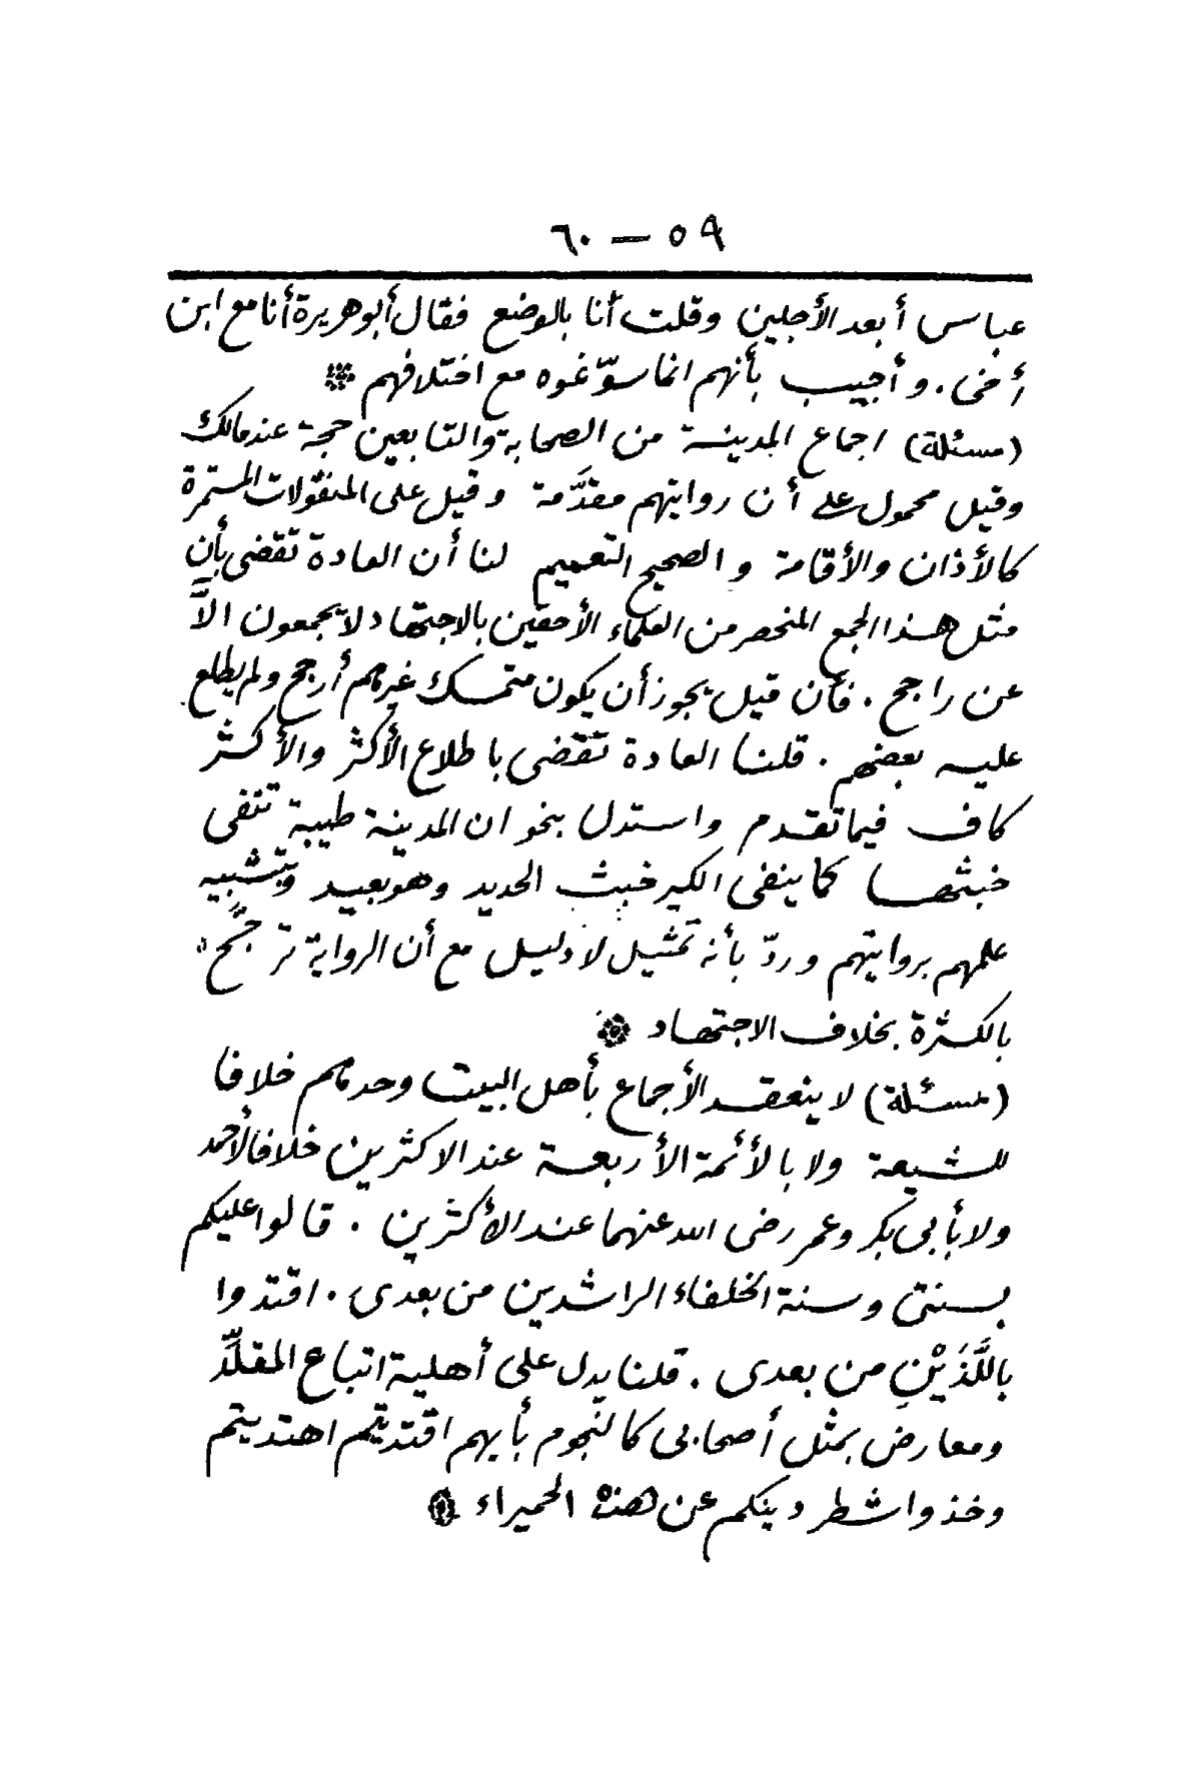 ٥٩ — ٦٠
عباس أبعد الأجلين وقلت أنا بالوضع فقال أبو هريرة أنا مع ابن
أخى . وأجيب بأنهم انما سوّغوه مع اختلافهم
(مسئلة) اجماع المدينة من الصحابة والتابعين حجة عند مالك
وقيل محمول على أن روايتهم مقدَّمة وقيل على المنقولات المستمرة
كالأذان والأقامة والصحيح التعميم لنا أن العادة تقضى بأن
مثل هذا الجمع المنحصر من العلماء الأحقين بالاجتهاد لا يجمعون الاَّ
عن راجح . فأن قيل يجوز أن يكون متمسك غيرهم أرجح ولم يطلع
عليه بعضهم . قلنا العادة تقضى باطلاع الأكثر والأكثر
كاف فيما تقدم واستدل بنحو ان المدينة طيبة تنفى
خبثها كما ينفى الكير خبث الحديد وهو بعيد وبتشبيه
علمهم بروايتهم وردّ بأنه تمثيل لا دليل مع أن الرواية ترجَّح
بالكثرة بخلاف الاجتهاد
(مسئلة) لا ينعقد الأجماع بأهل البيت وحدهم خلافا
للشيعة ولا بالأئمة الأربعة عند الاكثرين خلافا لأحمد
ولا بأبى بكر وعمر رضى الله عنهما عند الأكثرين . قالوا عليكم
بسنتى وسنة الخلفاء الراشدين من بعدى . اقتدوا
باللَّذَيْنِ من بعدى . قلنا يدل على أهلية اتباع المقلِّد
ومعارض بمثل أصحابى كالنجوم بأيهم اقتديتم اهتديتم
وخذوا شطر دينكم عن هذه الحميراء